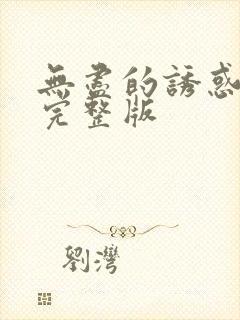 無盡的誘惑
完整版
劉灣